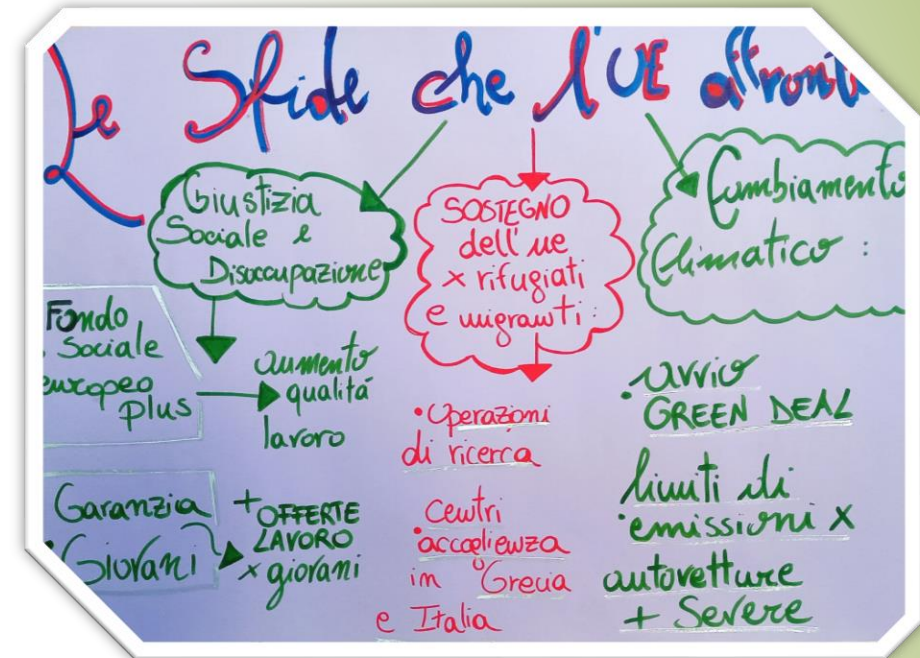 Le Sfide che l'UE affronta
Giustizia
Sociale e
Disoccupazione
Fondo
Sociale
europeo
plus
aumento
qualità
lavoro
Garanzia
Giovani
+ OFFERTE
LAVORO
x giovani
SOSTEGNO
dell'ue
x rifugiati
e migranti:
• Operazioni
di ricerca
Centri
• accoglienza
in Grecia
e Italia
Cambiamento
Climatico:
avvio
• GREEN DEAL
limiti di
• emissioni x
autovetture
+ Severe